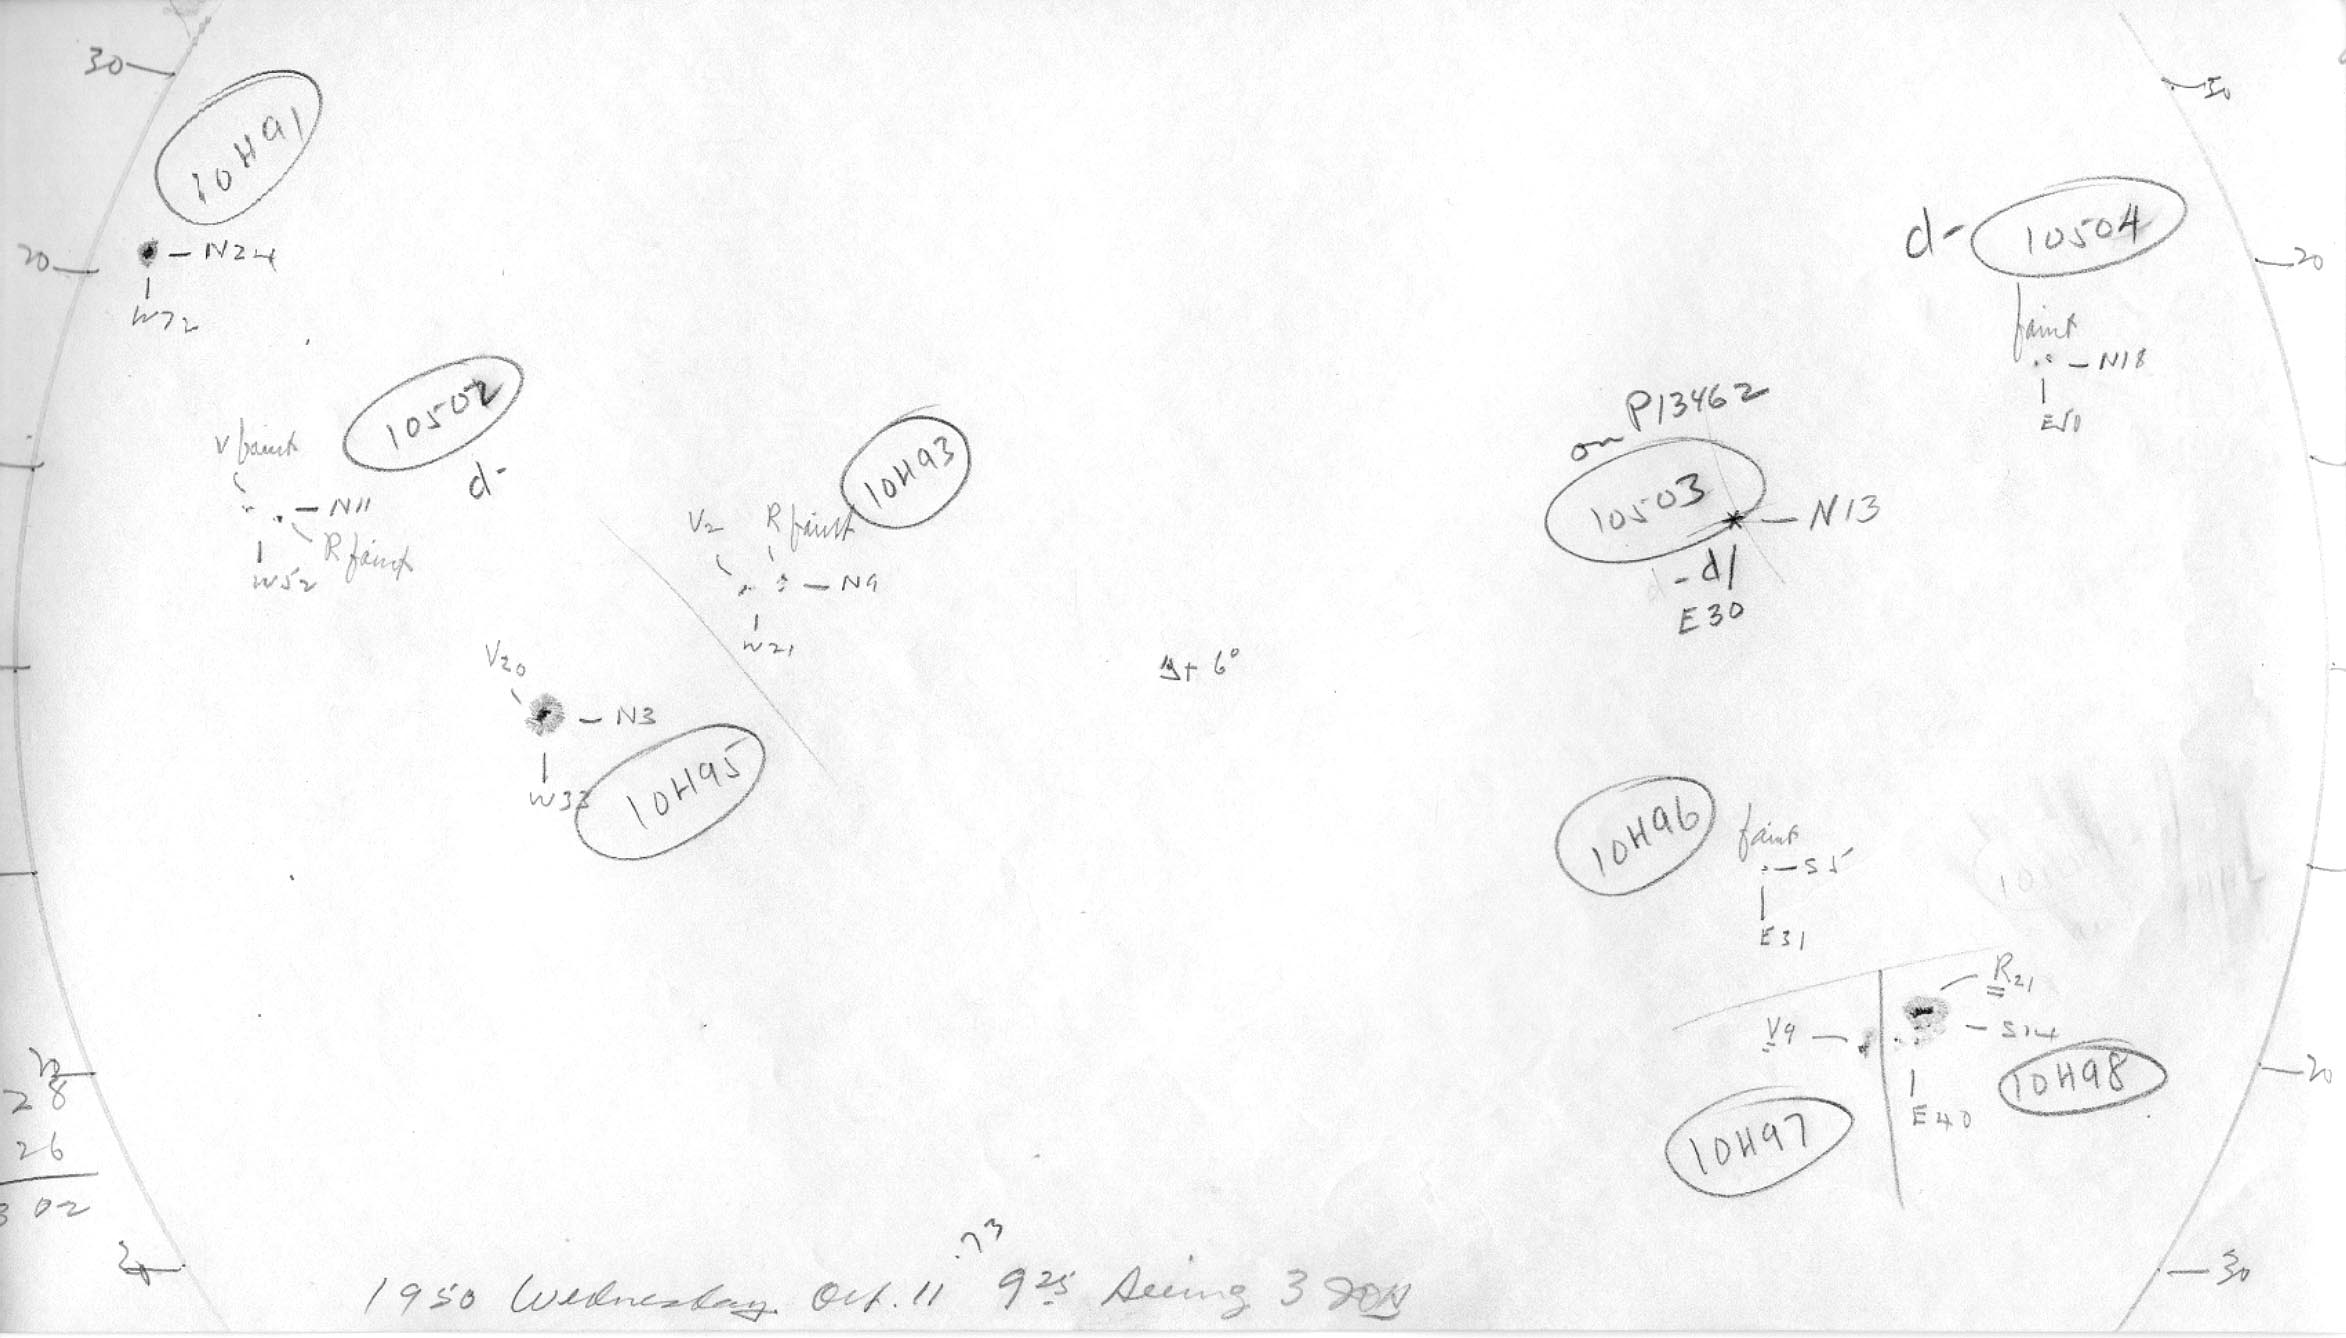 30
30
10H91
20
N24
W72
d-
10504
20
faint
N18
E50
10502
d-
V faint
N11
R faint
W52
10H93
V2
R faint
N9
W21
on P13462
10503
N13
-d/
E30
V20
N3
W33
10H95
+ 6°
10H96
faint
S5
E31
R21
V9
S14
E40
10H98
10H97
20
28
26
302
20
30
.73
1950 Wednesday Oct. 11 9 25 Seeing 3